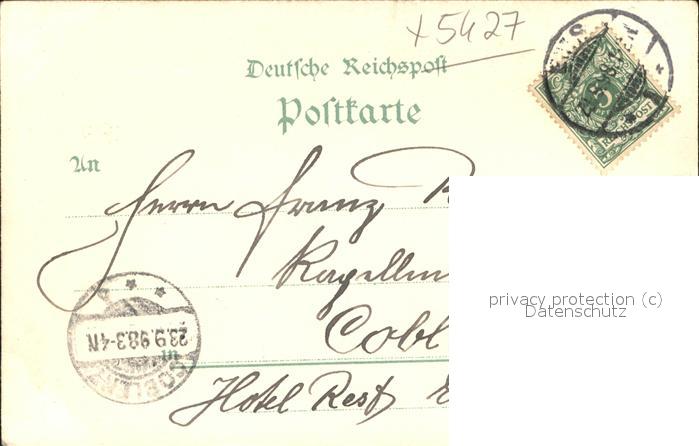 +5427
Deutsche Reichspost
Postkarte
An
Herrn Franz
Kapellm
Cobl
in
Hotel Rest
23.9.98.3-4N
REICHSPOST
5
privacy protection (c)
Datenschutz